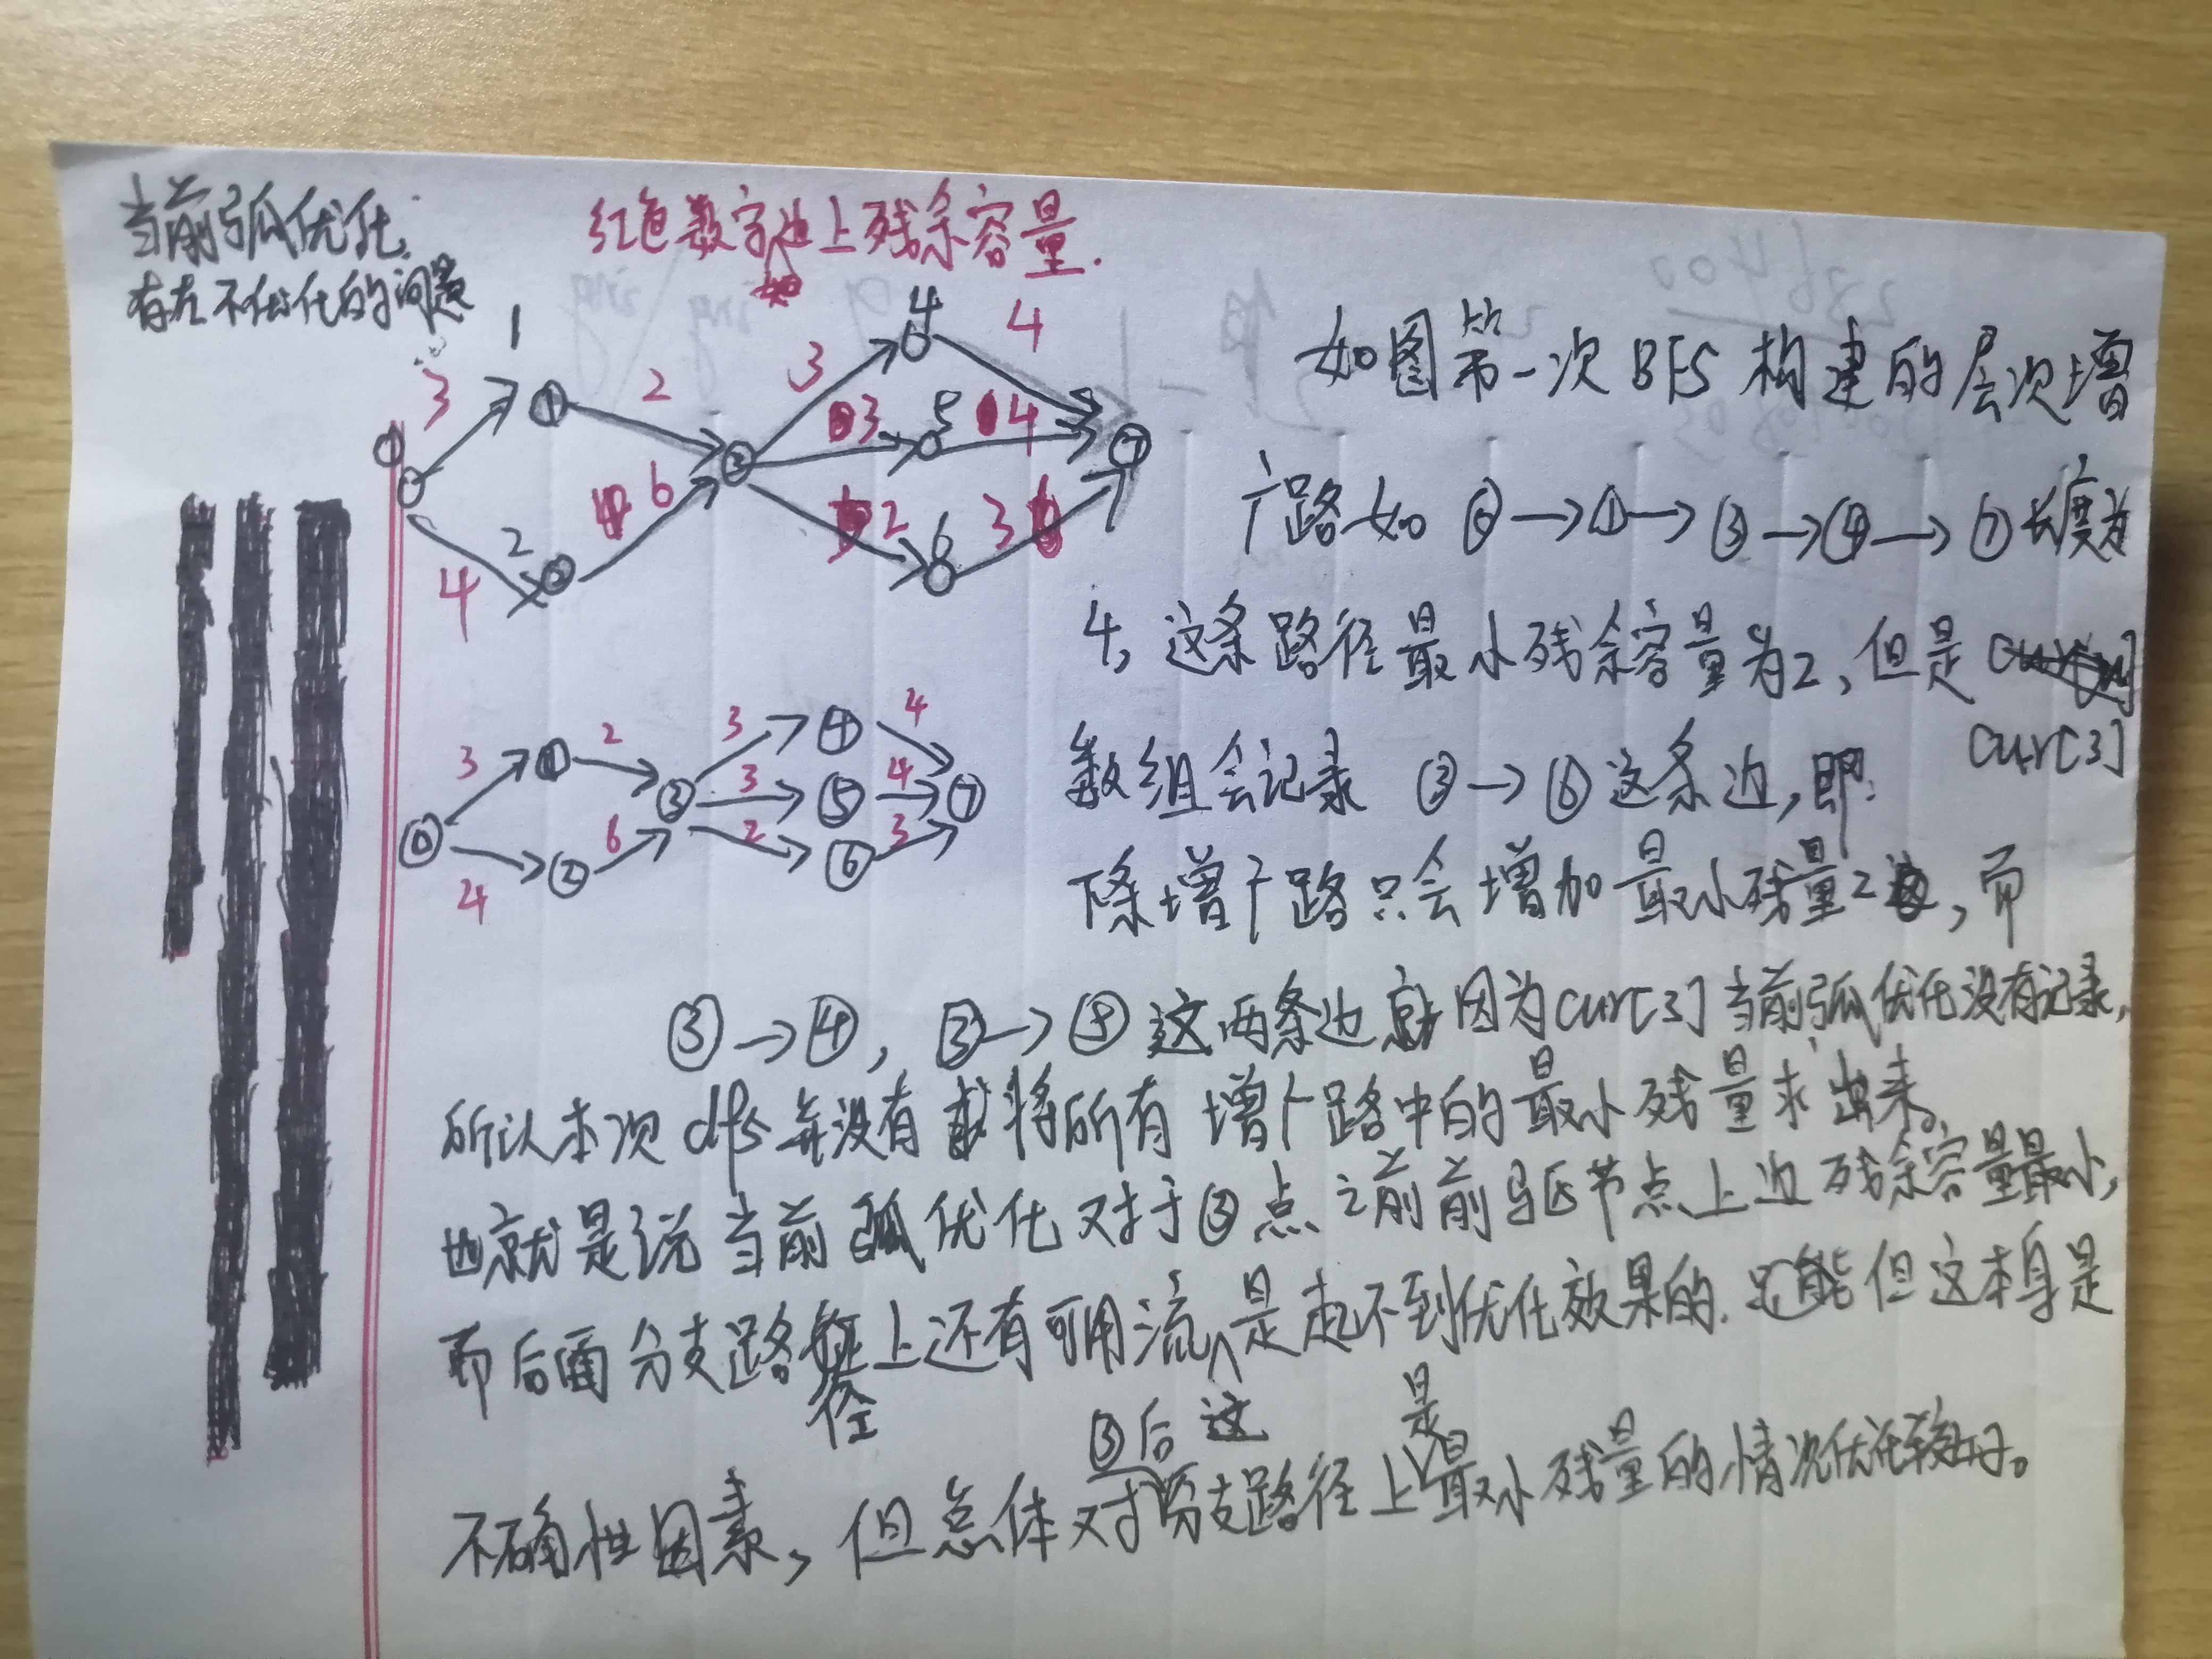 当前弧优化.
存在不优化的问题
红色数字边上残余容量.
3
1
①
2
3
4
4
3
5
4
⑦
③
6
2
3
6
4
2
②
3
①
2
3
④
4
③
3
⑤
4
⑦
⓪
6
2
⑥
3
4
②
如图第一次BFS构建的层次增
广路如 ⓪→①→③→④→⑦长度为
4, 这条路径最小残余容量为2, 但是
cur[3]
数组会记录 ③→⑥这条边, 即:
下条增广路只会增加最小残量2, 而
③→④, ③→⑤这两条边就因为cur[3]当前弧优化没有记录,
所以本次dfs并没有将所有增广路中的最小残量求出来。
也就是说当前弧优化对于③点之前前驱节点上边残余容量最小,
而后面分支路径上还有可用流, 这是起不到优化效果的. 但这本身是
不确性因素, 但总体对③后分支路径上是最小残量的情况优化较好。